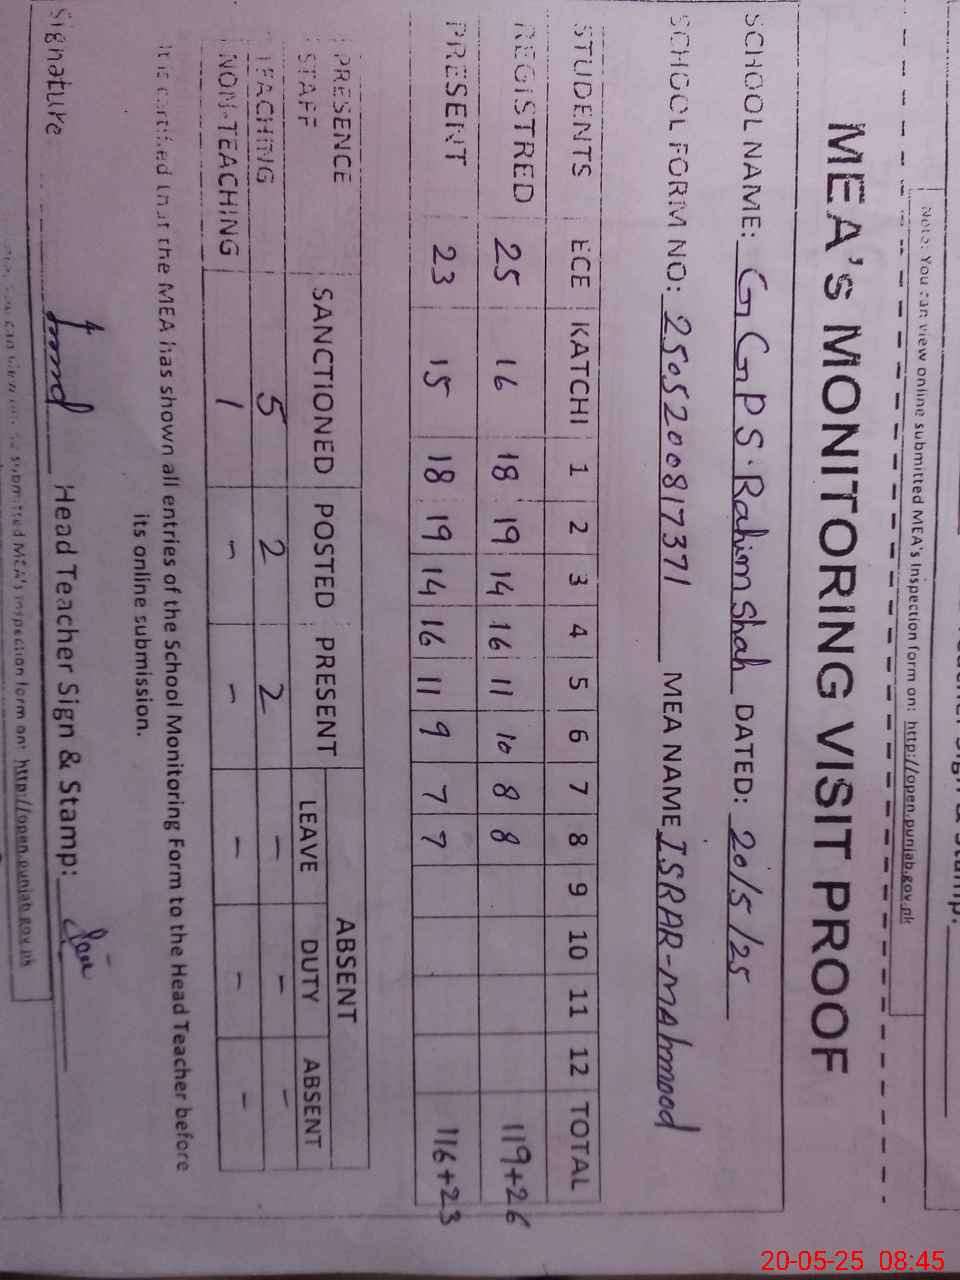 Note: You can view online submitted MEA's Inspection form on: http://open.punjab.gov.pk
MEA's MONITORING VISIT PROOF
SCHOOL NAME: GGPS. Rahim Shah DATED: 20/5/25
SCHOOL FORM NO: 2505200817371 MEA NAME ISRAR-MAhmood
STUDENTS ECE KATCHI 1 2 3 4 5 6 7 8 9 10 11 12 TOTAL
REGISTRED 25 16 18 19 14 16 11 10 8 8 119+26
PRESENT 23 15 18 19 14 16 11 9 7 7 116+23
PRESENCE STAFF SANCTIONED POSTED PRESENT ABSENT
LEAVE DUTY ABSENT
TEACHING 5 2 2 - - -
NON-TEACHING 1 - - - - -
It is certified that the MEA has shown all entries of the School Monitoring Form to the Head Teacher before
its online submission.
Signature Head Teacher Sign & Stamp:
you can view online submitted MEA's Inspection form on: http://open.punjab.gov.pk
20-05-25 08:45